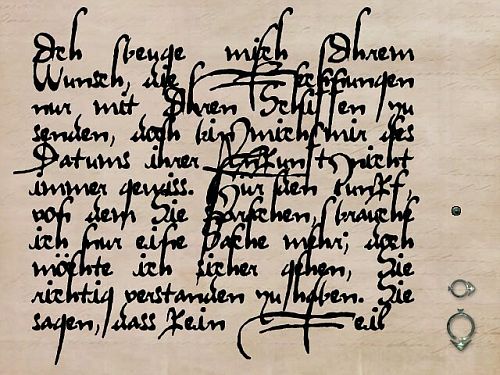 Ich beuge mich Ihrem
Wunsch, die
nur mit Ihren Schiffen zu
senden, doch bin mir des
Datums ihrer Ankunft nicht
immer gewiss. den
von dem Sie brauche
ich nur eine Sache mehr; doch
möchte ich sicher gehen, Sie
richtig verstanden zu haben. Sie
sagen, dass kein Teil